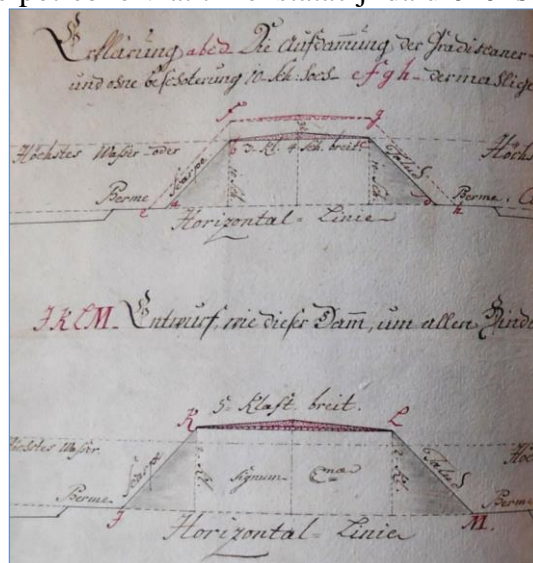 Erklärung abcd. Die Aufdamung der Gradiscaner-
und ohne beschoterung 10 Sch: hoch efgh. dermalige
f g
Höchstes Wasser oder
b 3. Kl. 4 Sch. breit. c
Höchs
Berme
Scarpe
Talus
Berme.
e a d h
Horizontal = Linie
JKLM. Entwurf, wie dieser Dam, um allen Hinde
5. Klaft. breit.
K L
Höchstes Wasser.
Höc
Scarpe
Signum
Talus
Berme
Berme
J M.
Horizontal = Linie